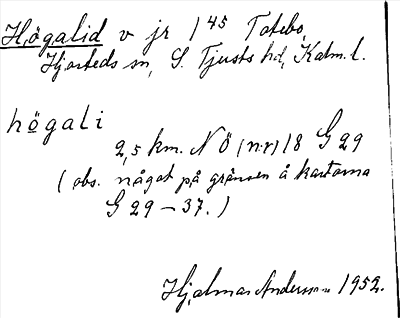 Högalid v jr 1 45 Totebo,
Hjorteds sn, S. Tjusts hd, Kalm. l.
högali
2,5 km. NÖ (nr) 18 G 29
(obs. något på gränsen å kartorna
G 29 – 37.)
Hjalmar Andersson 1952.